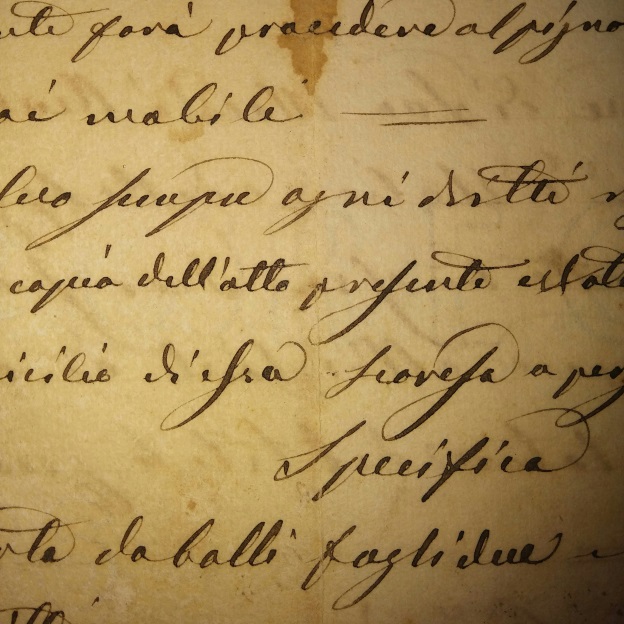 farà procedere al pigno
mobili
sempre ogni dritto
copia dell'atto presente è stata
icilio di essa Scoressa a per
Specifica
rta da bolli fogli due